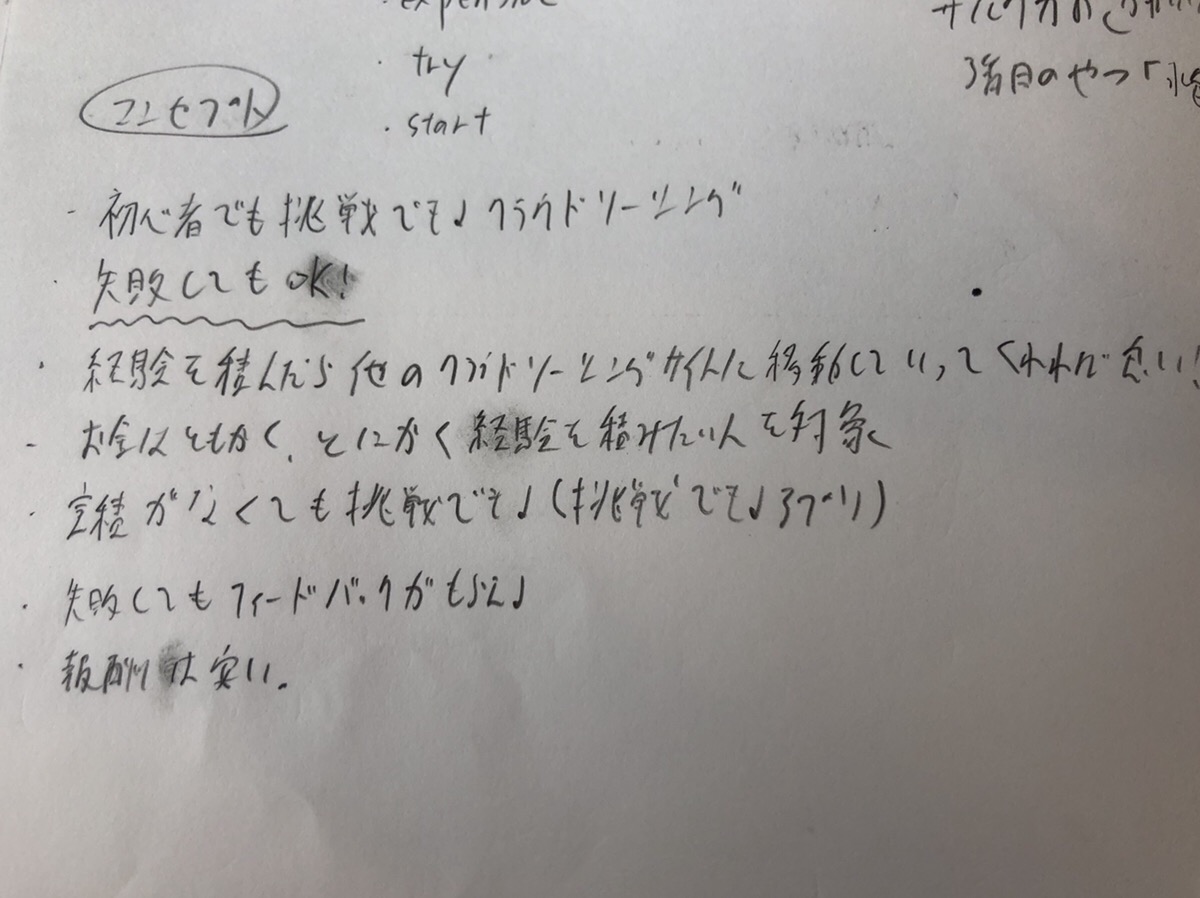 try
start
コンセプト
- 初心者でも挑戦できるクラウドソーシング
・失敗してもOK!
・経験を積んだら他のクラウドソーシングサイトに移動していってくれれば良い!
- お金はともかく、とにかく経験を積みたい人を対象
・実績がなくても挑戦できる(挑戦できるスペリ)
・失敗してもフィードバックがもらえる
・報酬は安い。